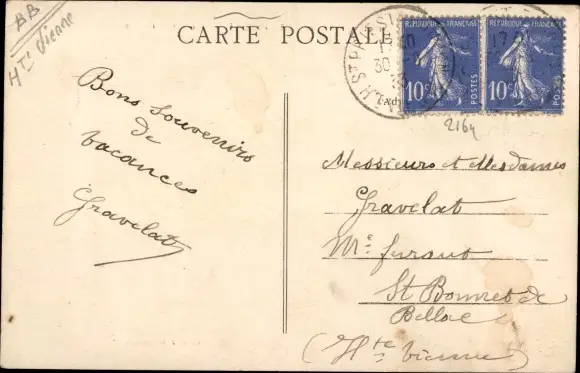 BB
Hte Vienne
CARTE POSTALE
REPUBLIQUE FRANÇAISE
10c
POSTES
REPUBLIQUE FRANÇAISE
10c
POSTES
ST PRIEST
30
2164
Bons souvenirs
de
vacances
Gravelat
Messieurs et Mesdames
Gravelat
St Bonnet de
Bellac
(Hte Vienne)